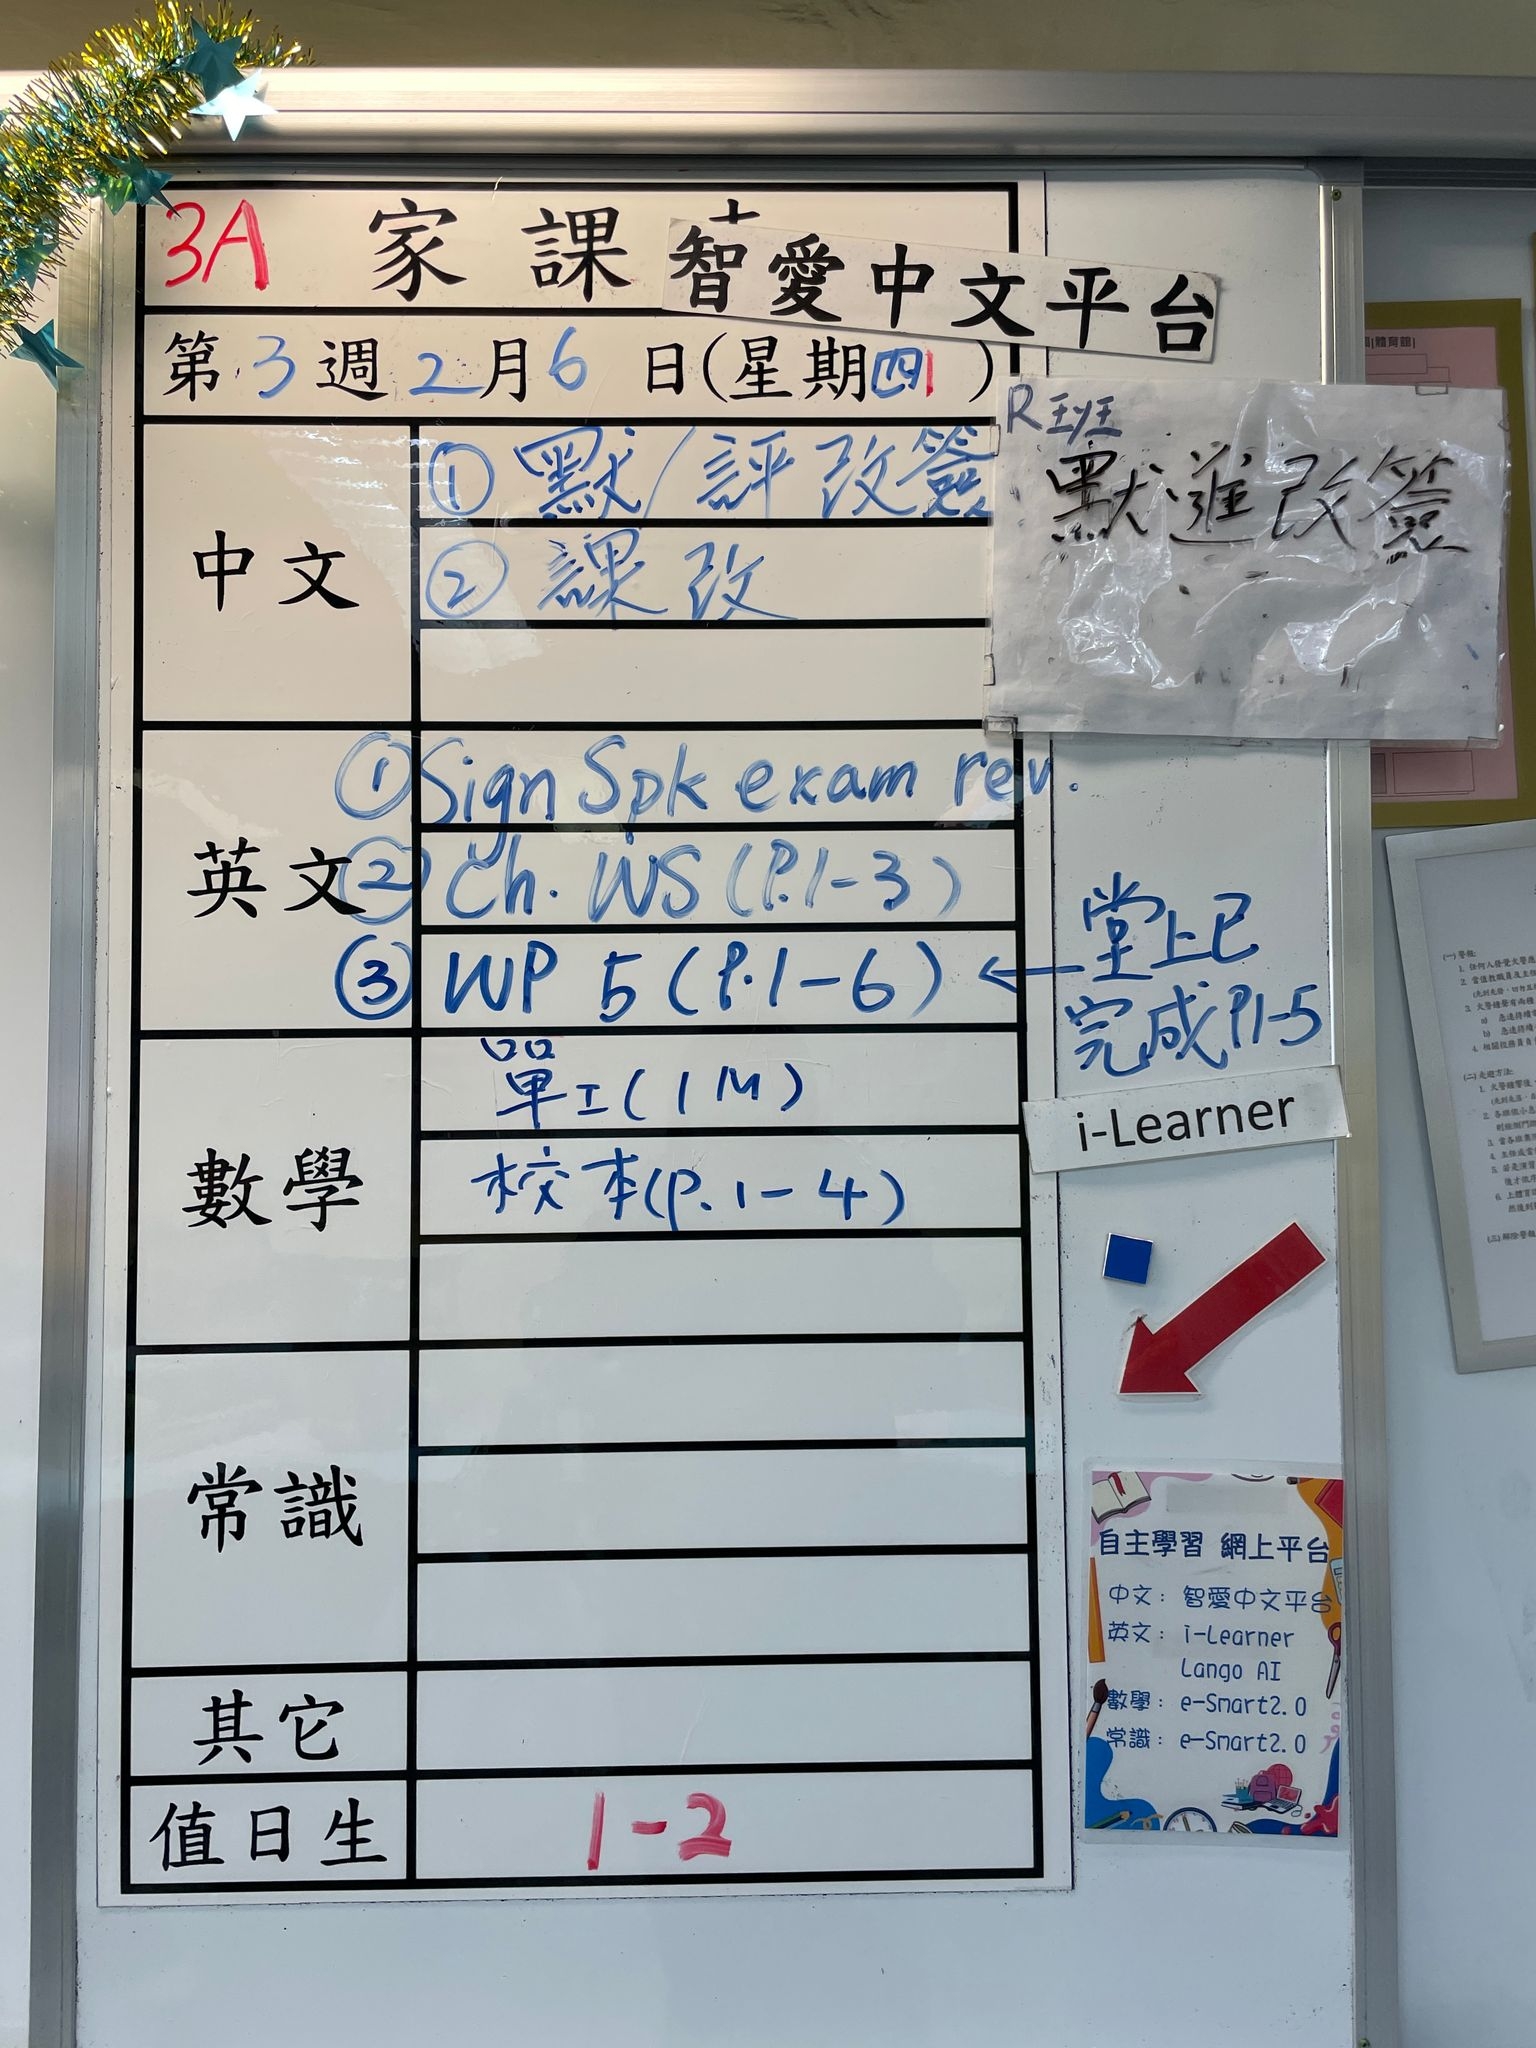 3A 家課
智愛中文平台
第3週2月6日(星期四1)
R班
默進改簽
中文
① 默/評改簽
② 課改
英文
① Sign Spk exam rev.
② Ch. WS (P.1-3)
③ WP 5 (P.1-6) ← 堂上已
完成P1-5
i-Learner
數學
單工(1M)
校本(P.1-4)
常識
其它
值日生
1-2
自主學習 網上平台
中文：智愛中文平台
英文：i-Learner
Lango AI
數學：e-Smart2.0
常識：e-Smart2.0
體育館
(一) 警報:
(二) 走避方法: